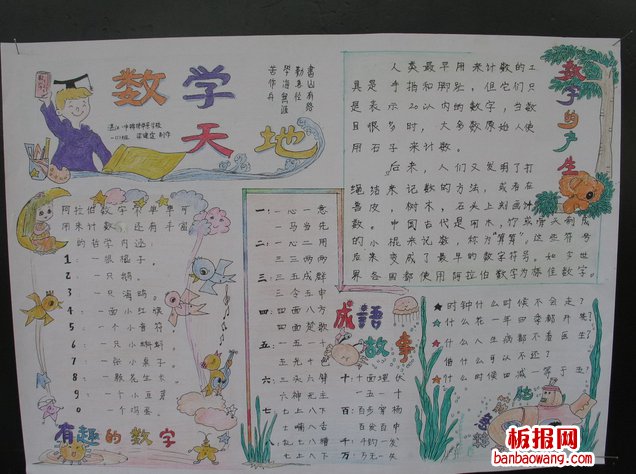 数学
天地
书山有路
勤为径
学海无涯
苦作舟
数字的产生
人类最早用来计数的工
具是手指和脚趾,但它们只
是表示20以内的数字,当数
目很多时,大多数原始人使
用石子来计数。
后来,人们又发明了打
绳结来记数的方法,或者在
兽皮,树木,石头上刻画计
数。中国古代是用木,竹或骨头制成
的小棍来记数,称为"算筹",这些符号
后来变成了最早的数字符号。如今世
界各国都使用阿拉伯数字为标准数字。
阿拉伯数字不单单可
用来计数,还有丰富
的哲学内涵:
1:一根棍子,
2:一只鹅,
3:一只海鸥。
4:一面小红旗
5:一个小音符
6:一只小蝌蚪
7:一张小桌子。
8:一颗花生米
9:一个小豆芽
0:一个鸡蛋。
有趣的数字
成语
故事
一:一心一意
一马当先
二:三心二用
三三两两
三:三五成群
三令五申
四:四面八方
四面楚歌
五:五十一
五光十
六:三头六臂
六神无主
七:七上八下
七嘴八舌
八:七上八下
七七八八
十:十面埋伏
十万
百:百步穿杨
百发百中
千:千钧一发
万:万无一失
★时钟什么时候不会走?
★什么花一年四季都开
★什么人生病都不看医生?
★借什么可以不还?
★什么时候四减一等于五!
板报网
banbaowang.com